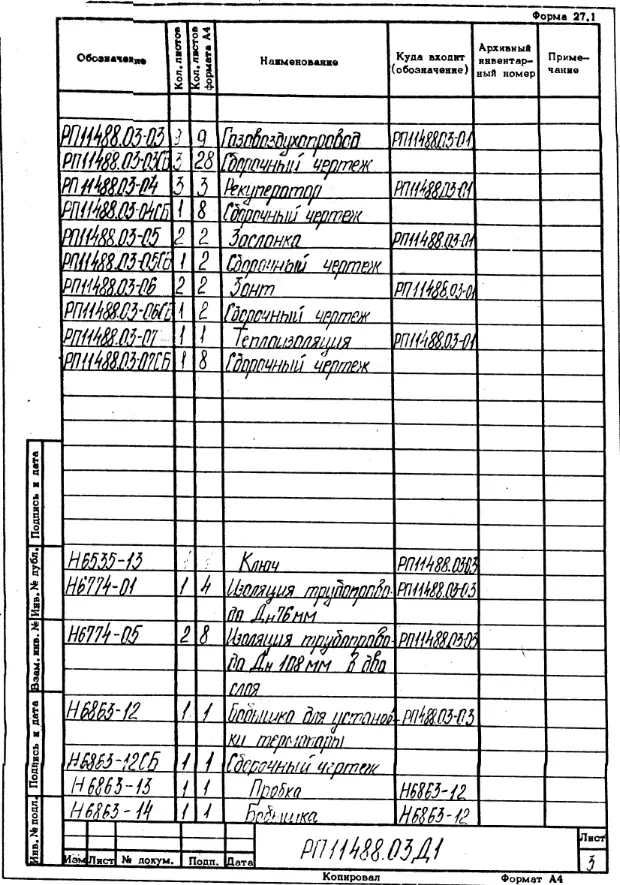 Форма 27.1
Обозначение Кол. листов Кол. листов формата А4 Наименование Куда входит (обозначение) Архивный инвентарный номер Примечание
РП11488.03-03 3 9 Газовоздухопровод РП11488.03-01
РП11488.03-03СБ 3 28 Сборочный чертеж
РП11488.03-04 3 3 Рекуператор РП11488.03-01
РП11488.03-04СБ 1 8 Сборочный чертеж
РП11488.03-05 2 2 Заслонка РП11488.03-01
РП11488.03-05СБ 1 2 Сборочный чертеж
РП11488.03-06 2 2 Зонт РП11488.03-01
РП11488.03-06СБ 1 2 Сборочный чертеж
РП11488.03-07 1 1 Теплоизоляция РП11488.03-01
РП11488.03-07СБ 1 8 Сборочный чертеж
Н6535-13 Ключ РП11488.03-03
Н6774-01 1 4 Изоляция трубопрово- РП11488.03-03
да Дн76мм
Н6774-05 2 8 Изоляция трубопрово- РП11488.03-03
да Дн 108мм в два
слоя
Н6863-12 1 1 Бобышка для установ- РП11488.03-03
ки термопары
Н6863-12СБ 1 1 Сборочный чертеж
Н6863-13 1 1 Пробка Н6863-12
Н6863-14 1 1 Бобышка Н6863-12
Инв. № подл. Подпись и дата Взам. инв. № Инв. № дубл. Подпись и дата
Изм Лист № докум. Подп. Дата
РП11488.03Д1
Лист
3
Копировал Формат А4